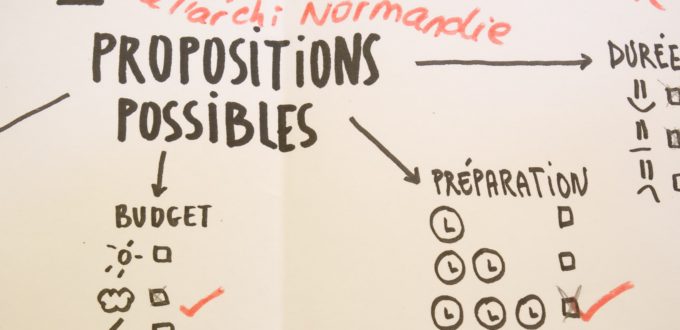 l'archi Normandie
PROPOSITIONS
POSSIBLES
DURÉE
BUDGET
PRÉPARATION